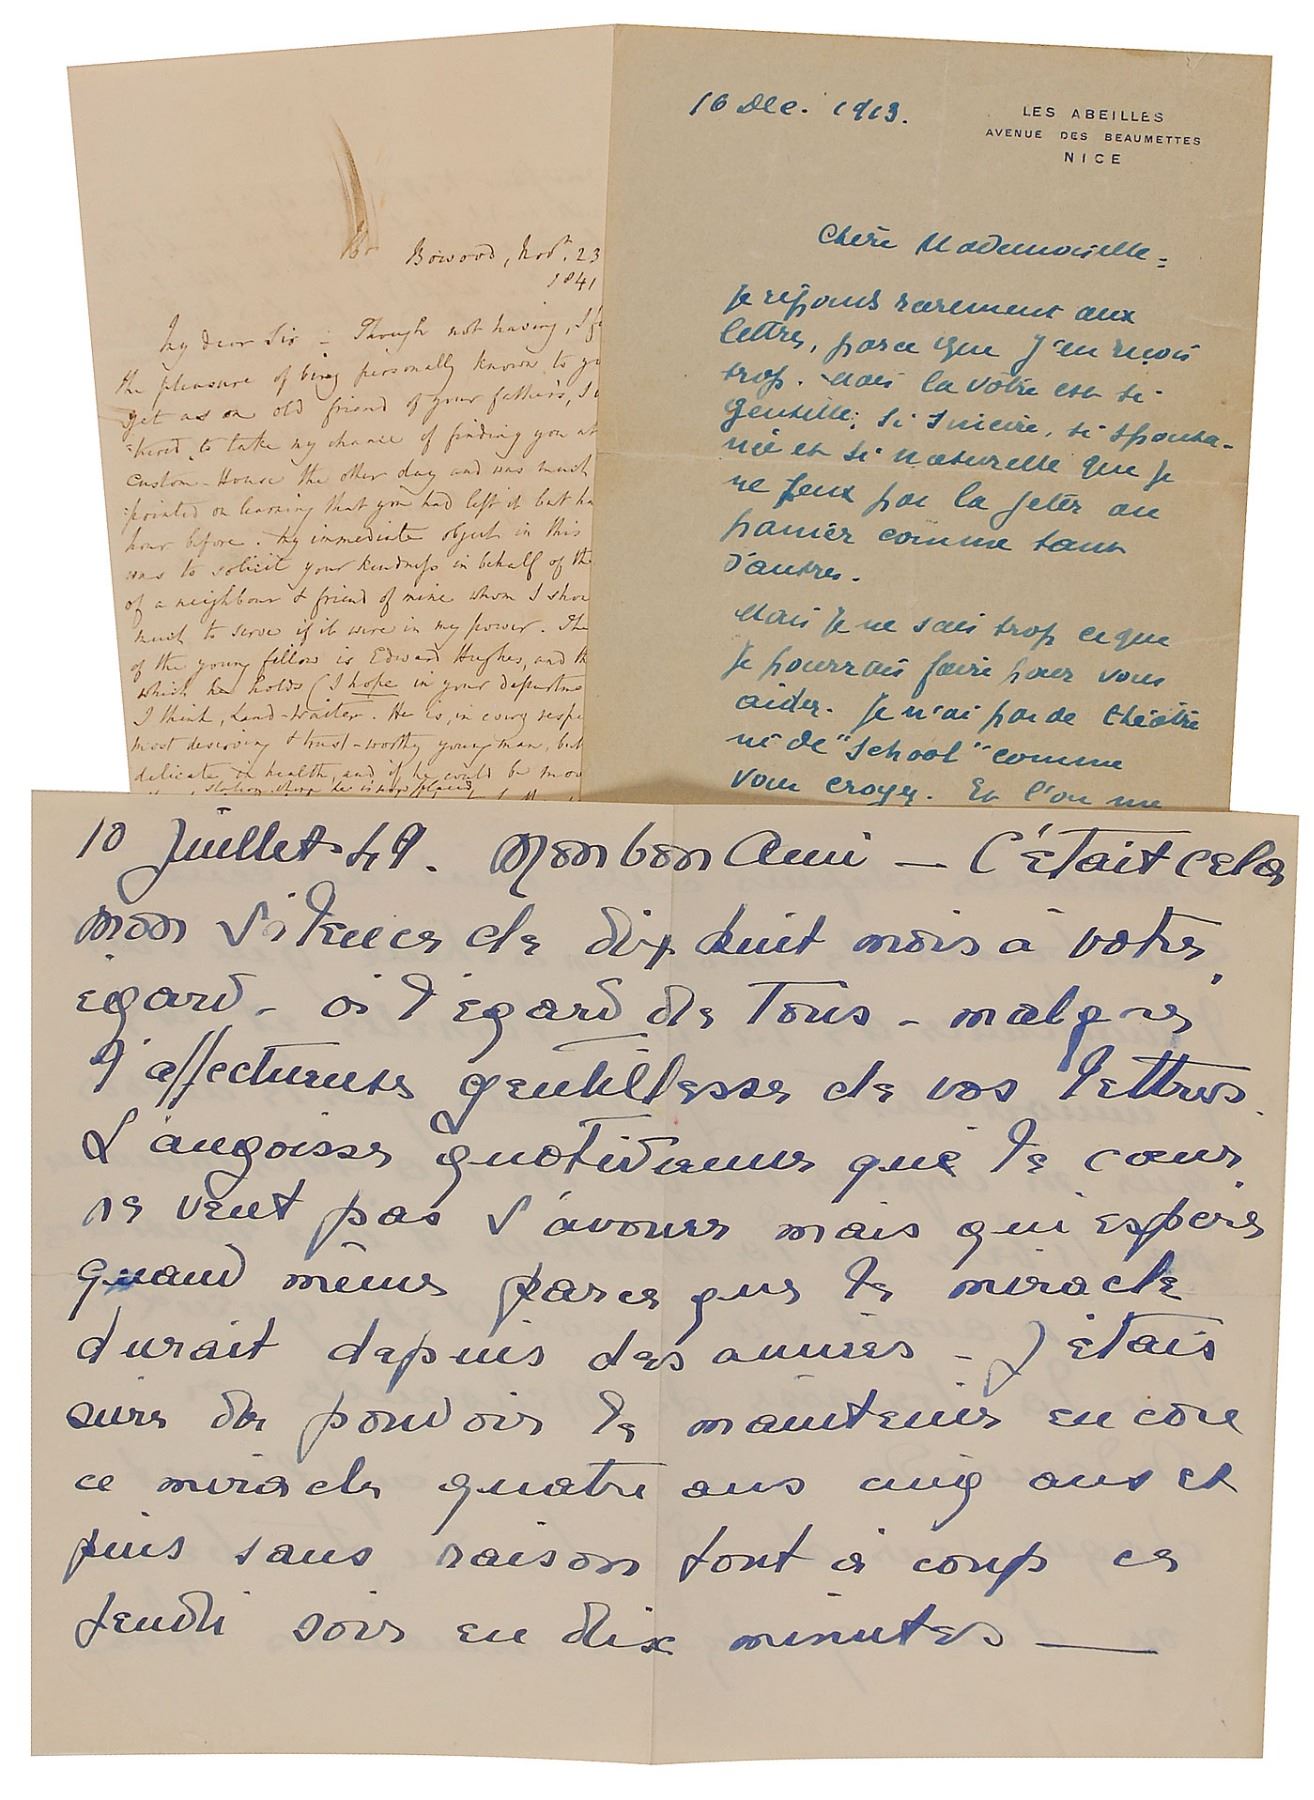 Bowood, Novr. 23
1841
My dear Sir – Though not having, I
the pleasure of being personally known to yo
yet as an old friend of your father's, I
to take my chance of finding you at
Custom-House the other day and was much
-pointed on learning that you had left it but ha
hour before. My immediate object in this
was to solicit your kindness in behalf of the
of a neighbour & friend of mine whom I shou
much to serve if it were in my power. The
of the young fellow is Edward Hughes, and th
which he holds (I hope in your departme
I think, Land-waiter. He is, in every respe
most deserving & trust-worthy young man, but
delicate in health, and if he could be mov
station where he is now placed
16 Dec. 1913.
LES ABEILLES
AVENUE DES BEAUMETTES
NICE
Chère Mademoiselle =
je réponds rarement aux
lettres, parce que j'en reçois
trop. Mais la vôtre est si
gentille, si sincère, si sponta-
née et si naturelle que je
ne peux pas la jeter au
panier comme tant
d'autres.
Mais je ne sais trop ce que
je pourrais faire pour vous
aider. Je n'ai pas de théâtre
ni de "School" comme
vous croyez. Et l'on me
10 Juillet 49. Mon bon Ami – C'était cela
mon silence de dix huit mois à votre
égard – à l'égard de Tous – malgré
l'affectueuse gentillesse de vos lettres.
L'angoisse quotidienne que le cœur
ne veut pas s'avouer mais qui espère
quand même parce que le miracle
durait depuis des années – J'étais
sure de pouvoir le maintenir encore
ce miracle quatre ans cinq ans et
puis sans raison tout à coup ce
jeudi soir en dix minutes —